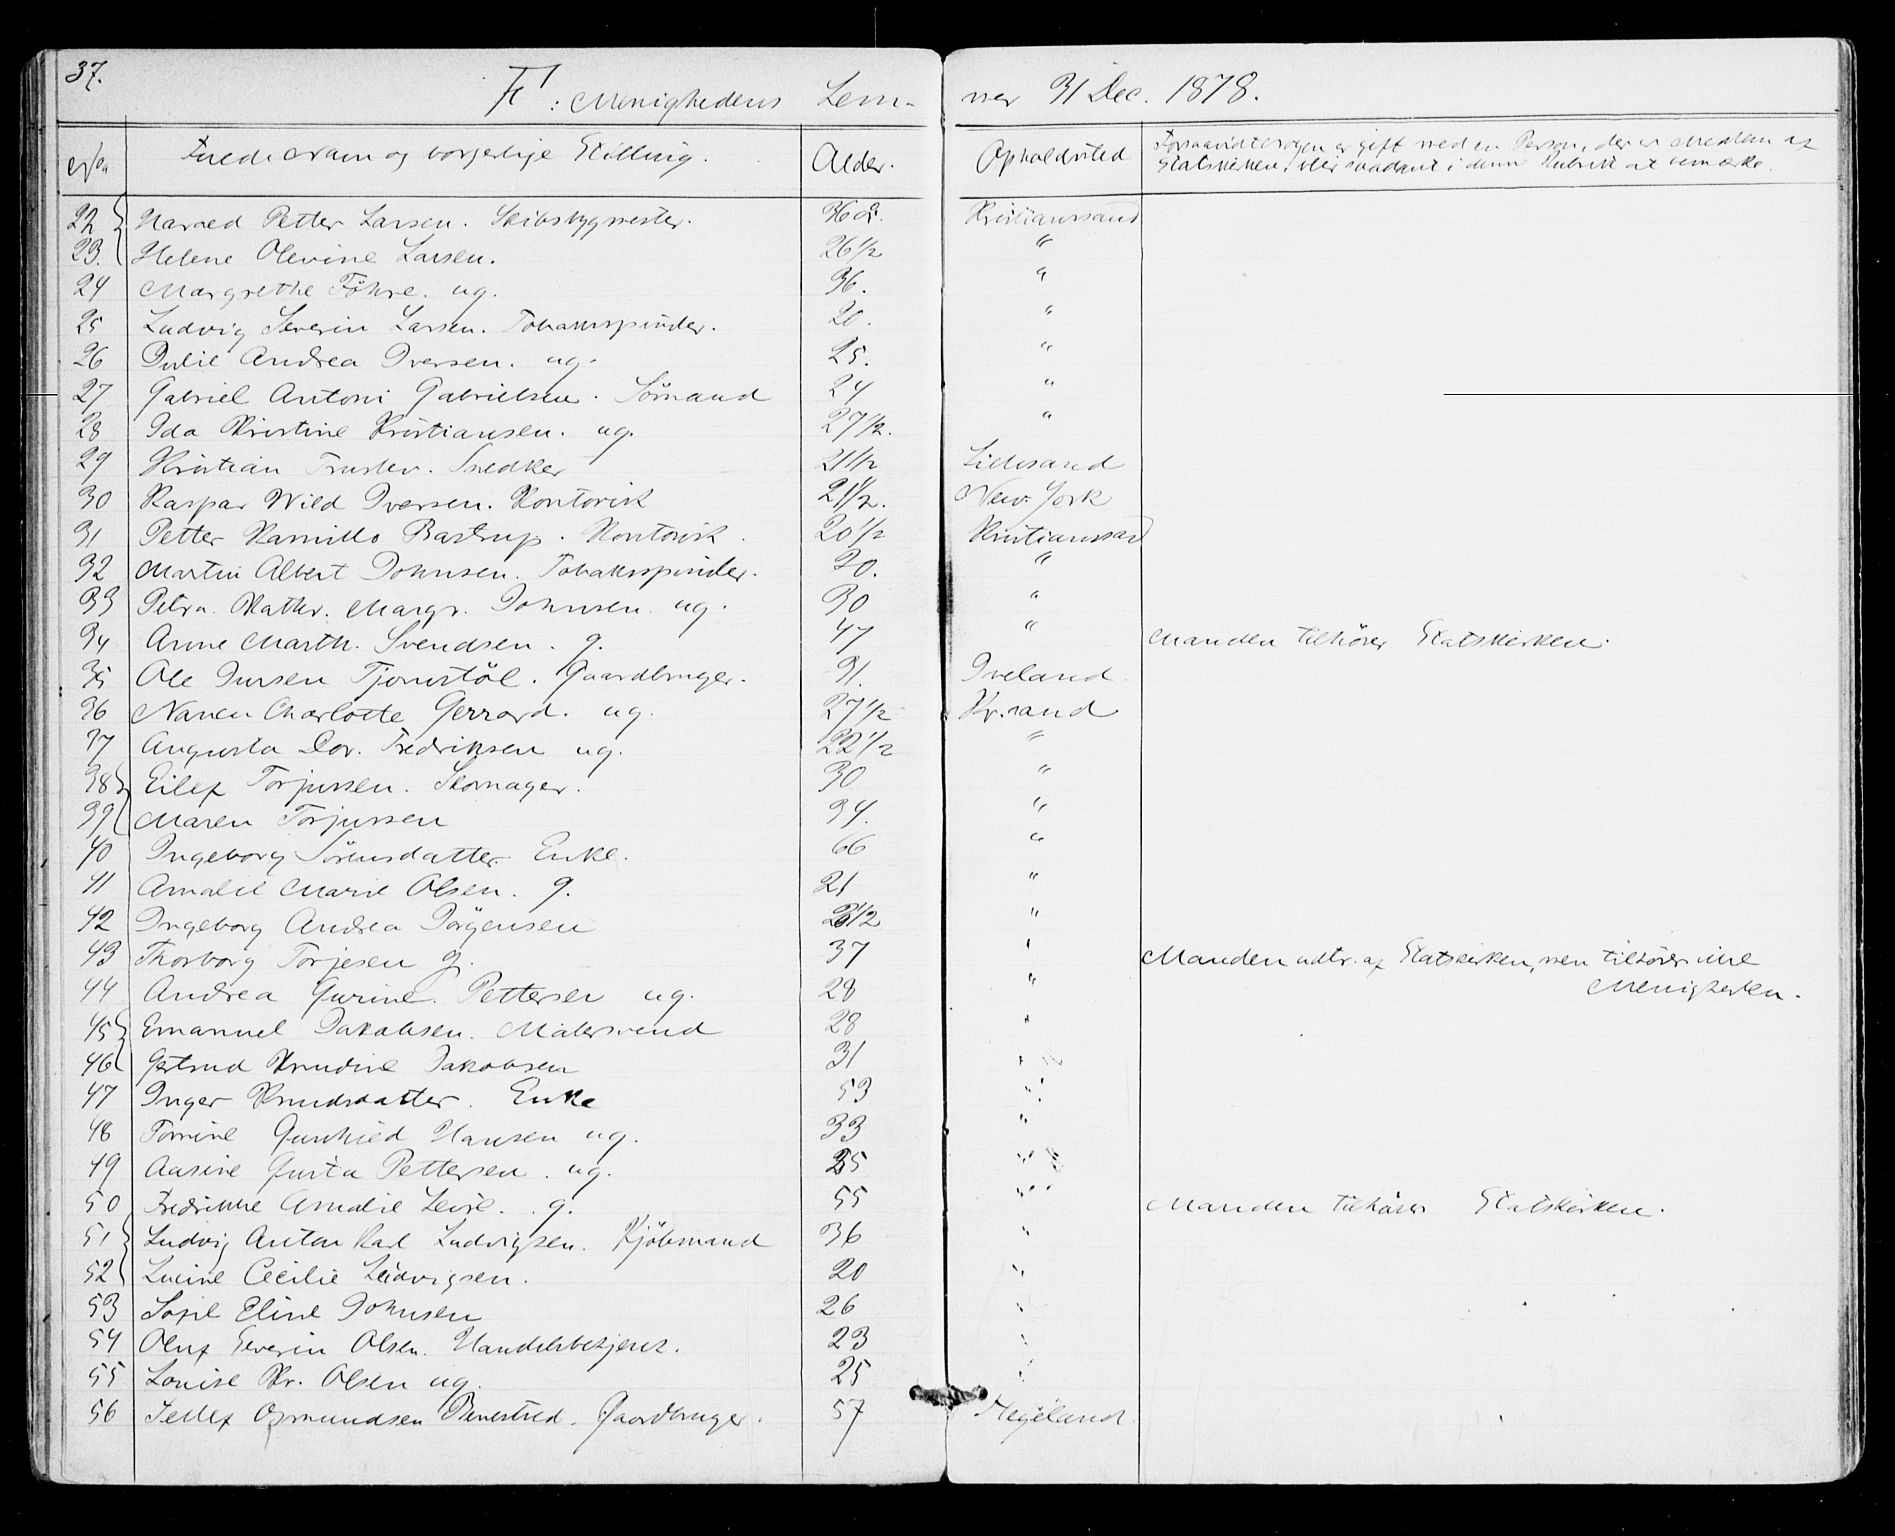 37.
F: Menighedens Lem- mer 31 Dec. 1878.
No Fulde Navn og borgerlige Stilling. Alder. Opholdssted Forsaavidt nogen er gift med en Person, der er Medlem af
Statskirken, bliver saadant i denne Rubrik at bemærke.
22 Harald Petter Larsen. Skibsbygmester. 36 Kristianssand
23. Helene Olevine Larsen. 26 1/2 "
24 Margrethe Föhre. ug. 36. "
25 Ludvig Severin Larsen. Tobaksspinder. 20. "
26 Julie Andrea Iversen. ug. 25. "
27 Gabriel Antoni Gabrielsen. Sömand 24 "
28 Ida Kristine Kristiansen. ug. 27 1/2. "
29 Kristian Snedker 21 1/2 Lillesand
30 Kaspar Wild Iversen. Kontorist 21 1/2. New York
31 Petter Kamillo Bastrup. Kontorist. 20 1/2 Kristianssand
32 Martin Albert Johnsen. Tobaksspinder. 30. "
33 Petra Kathr. Margr. Johnsen. ug. 30 "
34 Anne Marth. Svendsen. g. 47 " Manden tilhörer Statskirken.
35 Ole Jensen Tjomstöl. Gaardbruger. 31. Iveland
36 Nancy Charlotte Gerrard. ug. 27 1/2 Kr.sand
37 Augusta Dor. Fredriksen ug. 22 1/2 "
38 Eilef Torjussen. Skomager. 30 "
39 Maren Torjussen 34. "
40 Ingeborg Sörensdatter Enke. 66 "
41 Amalie Marie Olsen. g. 21 "
42 Ingeborg Andrea Jörgensen "
43 Thorborg Torjesen g. 37 " Manden udtr. af Statskirken, men tilhörer ine
Menigheden.
44 Andrea Gurine Pettersen ug. 28 "
45 Emanuel Jakobsen. Malersvend 28 "
46 Gertrud Knudine Jakobsen 31 "
47 Inger Knudsdatter. Enke 53 "
48 Tomine Gunhild Hansen ug. 33 "
49 Aasine Gurita Pettersen. ug. 35 "
50 Fredrikke Amalie Leire. g. 55 " Manden tilhörer Statskirken.
51 Ludvig Anton Karl Ludvigsen. Kjöbmand 36 "
52 Lucine Cecilie Ludvigsen. 20 "
53 Sofie Eline Johnsen 26 "
54 Oluf Severin Olsen. Handelsbetjent. 23 "
55 Louise Kr. Olsen ug. 25 "
56 Tellef Osmundsen Benestved. Gaardbruger. 57 Hegeland.